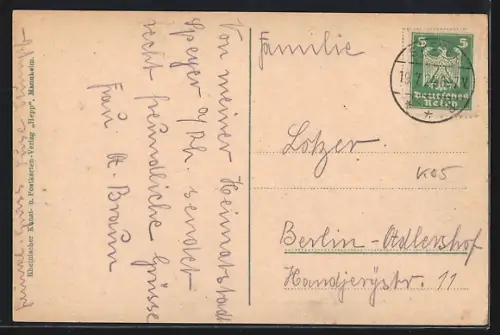 Von meiner Heimatstadt
Speyer a/Rh. sendet
recht freundliche Grüsse
Frau A. Braun
Rheinischer Kunst- u. Postkarten-Verlag „Hepp“, Mannheim.
Familie
Lotzer
Berlin-Adlershof
Handjerystr. 11
K05
5 5
Deutsches
Reich